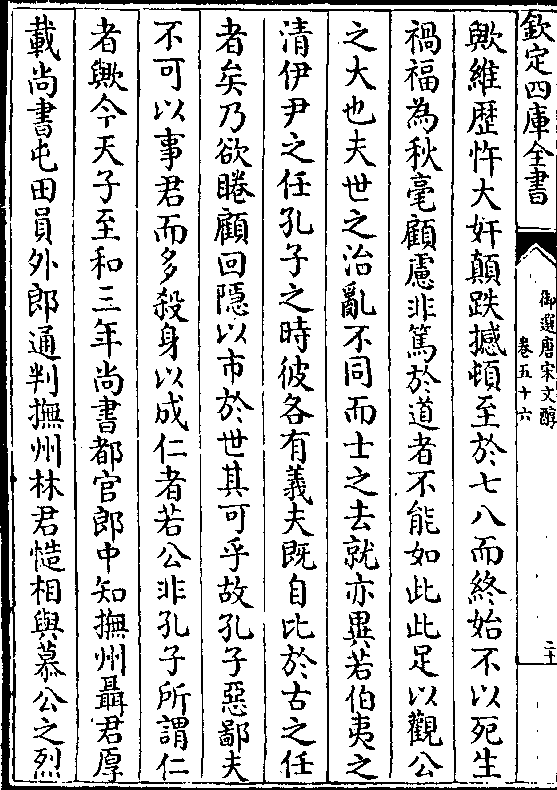 欽定四庫全書
御選唐宋文醇
卷五十六
二十
歟維歴忤大奸顛跌撼頓至於七八而終始不以死生
禍福為秋毫顧慮非篤於道者不能如此此足以觀公
之大也夫世之治亂不同而士之去就亦異若伯夷之
清伊尹之任孔子之時彼各有義夫既自比於古之任
者矣乃欲睠顧回隱以市於世其可乎故孔子惡鄙夫
不可以事君而多殺身以成仁者若公非孔子所謂仁
者歟今天子至和三年尚書都官郎中知撫州聶君厚
載尚書屯田員外郎通判撫州林君慥相與慕公之烈